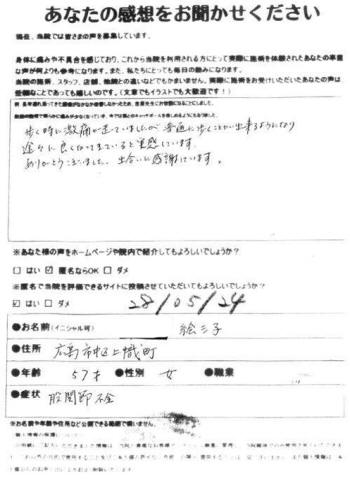 あなたの感想をお聞かせください
現在、当院では皆さまの声を募集しています。
身体に痛みや不具合を感じており、これから当院を利用される方にとって実際に施術を体験されたあなたの率直
な声が何よりも参考になります。また、私たちにとっても毎日の励みになります。
当院の施術、スタッフ、店舗、他院との違いなどでもかまいません。実際に施術をお受けいただいたあなたの声は
登録なことであっても嬉しいのです。(文章でもイラストでも大歓迎です!)
歩く時に激痛が走っていましたが普通に歩くことが出来るようになり
徐々に良くなってきていると実感しています。
ありがとうございました。出合いに感謝しています。
※あなた様の声をホームページや院内で紹介してもよろしいでしょうか?
□ はい ☑ 匿名ならOK □ ダメ
※匿名で当院を評価できるサイトに投稿させていただいてもよろしいでしょうか?
☑ はい □ ダメ 28/05/24
●お名前(イニシャル可) 絵三子
●住所 広島市中区上幟町
●年齢 57才 ●性別 女 ●職業
●症状 股関節不全
※お名前や年齢や住所など公開できる範囲で構いません。